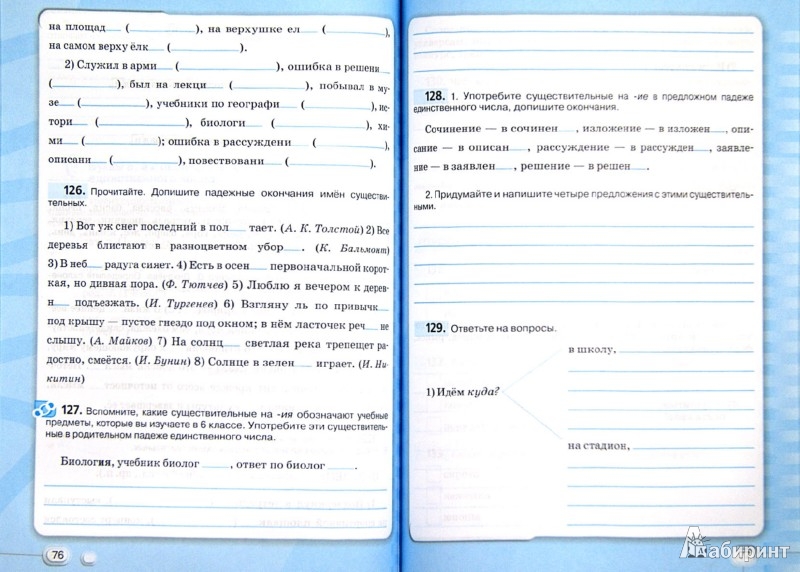 на площад___ (__________), на верхушке ел___ (__________),
на самом верху ёлк___ (__________).
2) Служил в арми___ (__________), ошибка в решени___
(__________), был на лекци___ (__________), побывал в му-
зе___ (__________), учебники по географи___ (__________), ис-
тори___ (__________), биологи___ (__________), хи-
ми___ (__________); ошибка в рассуждени___ (__________),
описани___ (__________), повествовани___ (__________).
126. Прочитайте. Допишите падежные окончания имён существи-
тельных.
1) Вот уж снег последний в пол___ тает. (А. К. Толстой) 2) Все
деревья блистают в разноцветном убор___. (К. Бальмонт)
3) В неб___ радуга сияет. 4) Есть в осен___ первоначальной корот-
кая, но дивная пора. (Ф. Тютчев) 5) Люблю я вечером к дерев-
н___ подъезжать. (И. Тургенев) 6) Взгляну ль по привычк___
под крышу — пустое гнездо под окном; в нём ласточек реч___ не
слышу. (А. Майков) 7) На солнц___ светлая река трепещет ра-
достно, смеётся. (И. Бунин) 8) Солнце в зелен___ играет. (И. Ни-
китин)
127. Вспомните, какие существительные на -ия обозначают учебные
предметы, которые вы изучаете в 6 классе. Употребите эти существитель-
ные в родительном падеже единственного числа.
Биология, учебник биолог____, ответ по биолог____.
76
128. 1. Употребите существительные на -ие в предложном падеже
единственного числа, допишите окончания.
Сочинение — в сочинен___, изложение — в изложен___, опи-
сание — в описан___, рассуждение — в рассужден___, заявле-
ние — в заявлен___, решение — в решен___.
2. Придумайте и напишите четыре предложения с этими существитель-
ными.
129. Ответьте на вопросы.
в школу,
1) Идём куда?
на стадион,
Лабиринт